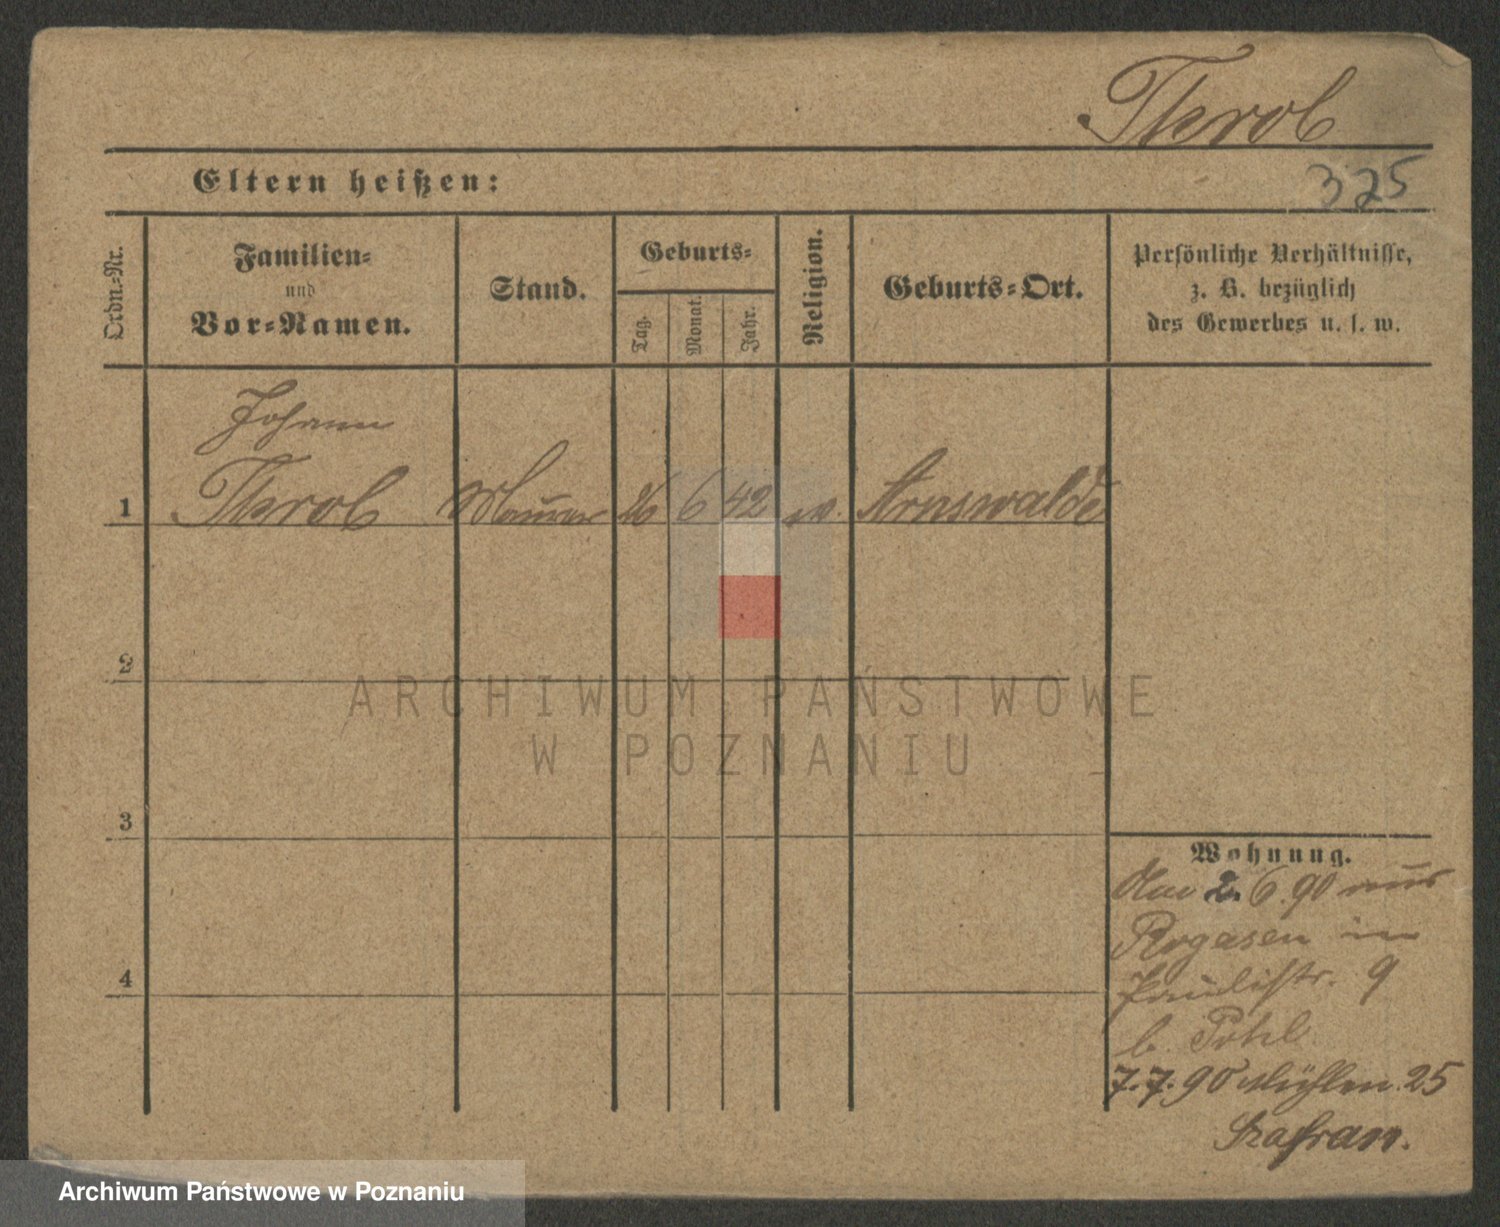 Skrob
325
Eltern heißen:
Ordn.-Nr.
Familien-
und
Vor-Namen.
Stand.
Geburts-
Tag.
Monat.
Jahr.
Religion.
Geburts-Ort.
Persönliche Verhältnisse,
z. B. bezüglich
des Gewerbes u. s. w.
Johann
1 Skrob Maurer 26 6 42 ev. Arnswalde
2
3
4
ARCHIWUM PAŃSTWOWE
W POZNANIU
Wohnung.
Am 2. 6. 90 aus
Rogasen in
Paulistr. 9
b. Pohl
7. 7. 90 Mühlen. 25
Szafran.
Archiwum Państwowe w Poznaniu